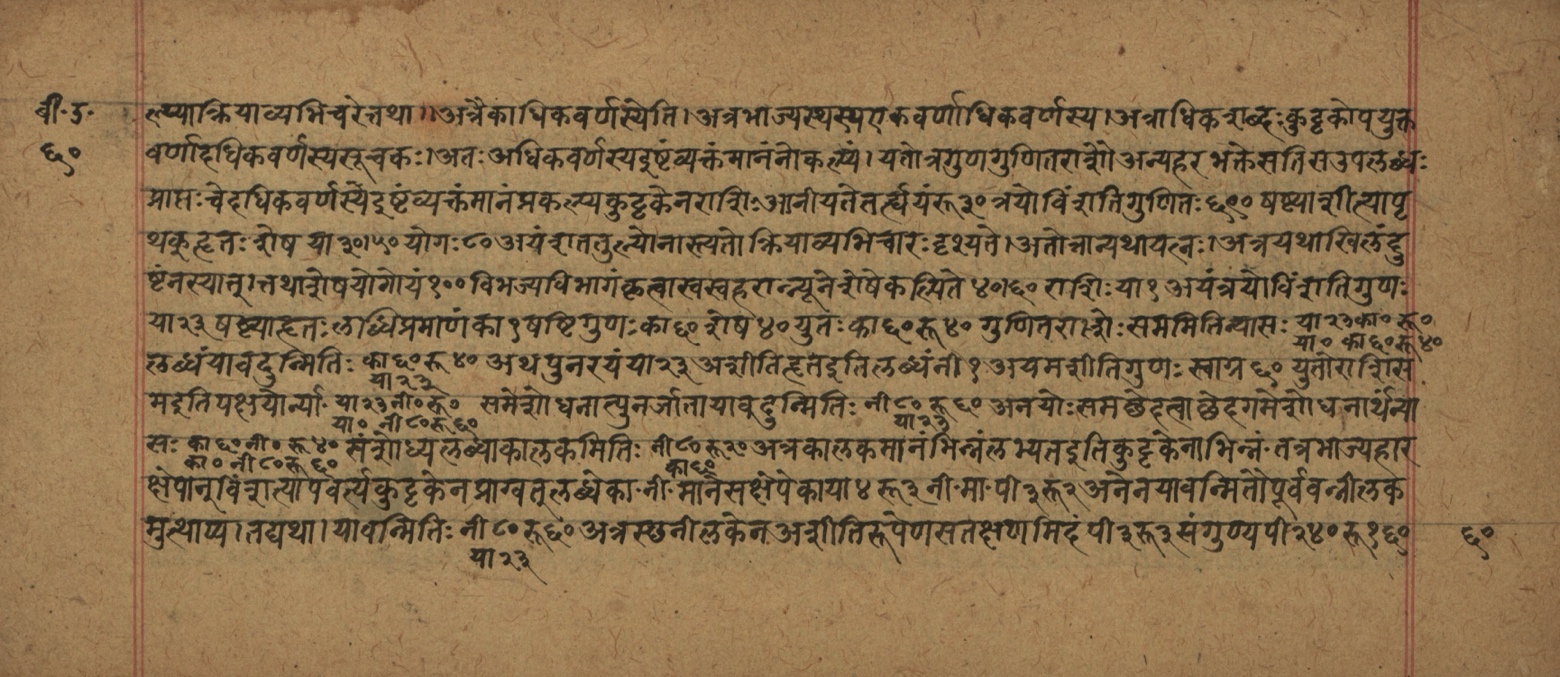 बी॰उ॰
६०
ल्प्याक्रियाव्यभिचरेत्तथा।।अत्रैकाधिकवर्णस्येति।अत्रभाज्यस्थस्यएकवर्णाधिकवर्णस्य।अत्राधिकशब्दःकुट्टकोपयुक्त
वर्णादधिकवर्णस्यसूचकः।अतःअधिकवर्णस्यदुष्टंव्यक्तंमानंनोकल्प्यं।यतोत्रगुणगुणितराशौअन्यहरभक्तेसतिसउपलब्धः
प्राप्तःचेदधिकवर्णस्यैदुष्टंव्यक्तंमानंप्रकल्प्यकुट्टकेनराशिःआनीयतेतर्ह्ययंरू३०त्रयोविंशतिगुणितः६९०षष्ट्याशीत्यापृ
थकहृतःशेष या३०।५०योगः८०अयंशततुल्योनास्त्यतोक्रियाव्यभिचारःदृश्यते।अतोत्रान्यथायत्नः।अत्रयथाखिलंदु
ष्टंनस्यात्।तथाशेषयोगोयं१००विभज्यविभागंकृत्वास्वस्वहरान्न्यूनेशेषेकल्पिते४०।६०राशिःया१अयंत्रयोविंशतिगुणः
या२३षष्ट्याहृतःलब्धिप्रमाणंका१षष्टिगुणःका६०शेष४०युतःका६०रू४०गुणितराशेःसममितिन्यासःया२३का०रू०
या०का६०रू४०
लब्धंयावदुन्मितिःका६०रू४०अथपुनरयंया२३अशीतिहृतइतिलब्धंनी१अयमशीतिगुणःस्वाग्र६०युतोराशिस
या२३
मइतिपक्षयोर्न्या॰या२३नी०रू०समशोधनात्पुनर्जातायावदुन्मितिःनी८०रू६०अनयोःसमछेदत्वाछेदगमेशोधनार्थंन्या
या०नी८०रू६० या२३
सःका६०नी०रू४०संशोध्यलब्धाकालकमितिःनी८०रू२०अत्रकालकमानंभिन्नंलभ्यतइतिकुट्टकेनाभिन्नं॰तत्रभाज्यहार
का०नी८०रू६० का६०
क्षेपान्विंशत्यापवर्त्यकुट्टकेनप्राग्वत्लब्धेका॰नी॰मानेसक्षेपेकाया४रू३नी॰मा॰पी३रू२अनेनयावन्मितौपूर्ववन्नीलक
मुत्थाप्य।तद्यथा।यावन्मितिःनी८०रू६०अत्रस्छनीलकेनअशीतिरूपेणसतक्षणमिदंपी३रू२संगुण्यपी२४०रू१६०
या२३
६०